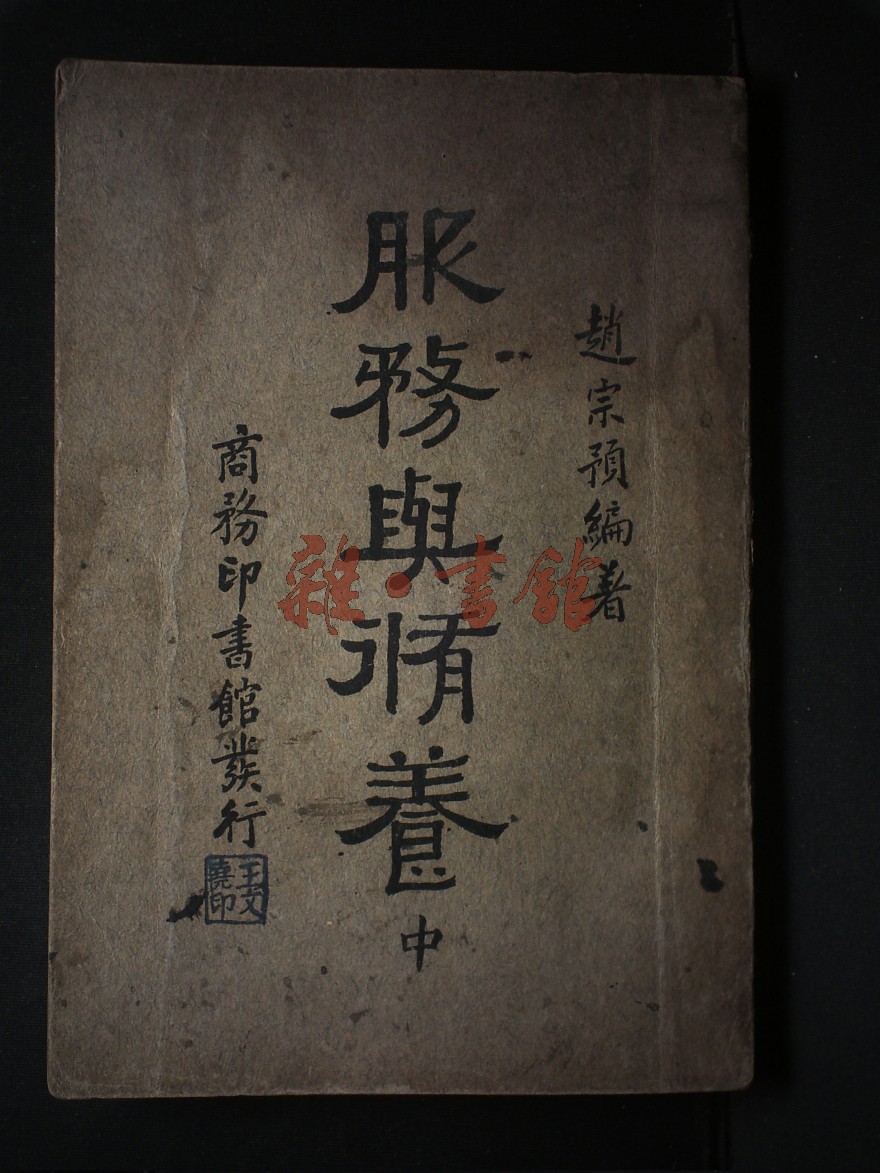 趙宗預編著
服務與脩養 中
商務印書館發行
王文堯印
雜·書館